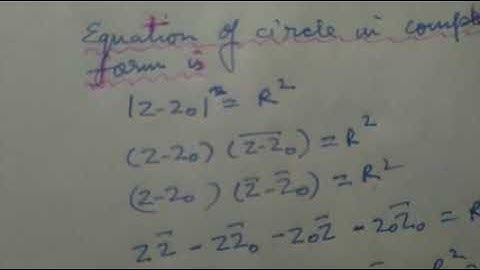 Equation of circle in
form is
|z-z₀|² = R²
(z-z₀) (z̄-z̄₀) = R²
(z-z₀) (z̄-z̄₀) = R²
zz̄ - zz̄₀ - z₀z̄ - z₀z̄₀ =